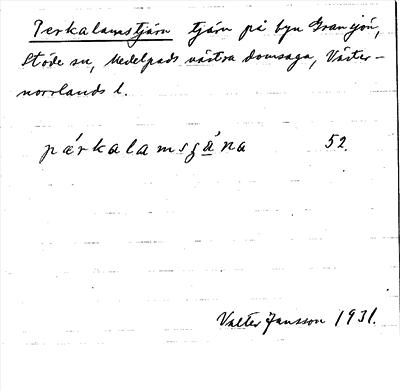 Perkalamstjärn tjärn på byn Gransjön,
Stöde sn, Medelpads västra domsaga, Väster-
norrlands l.
pǽrkalamsʒā̀na 52.
Valter Jansson 1931.